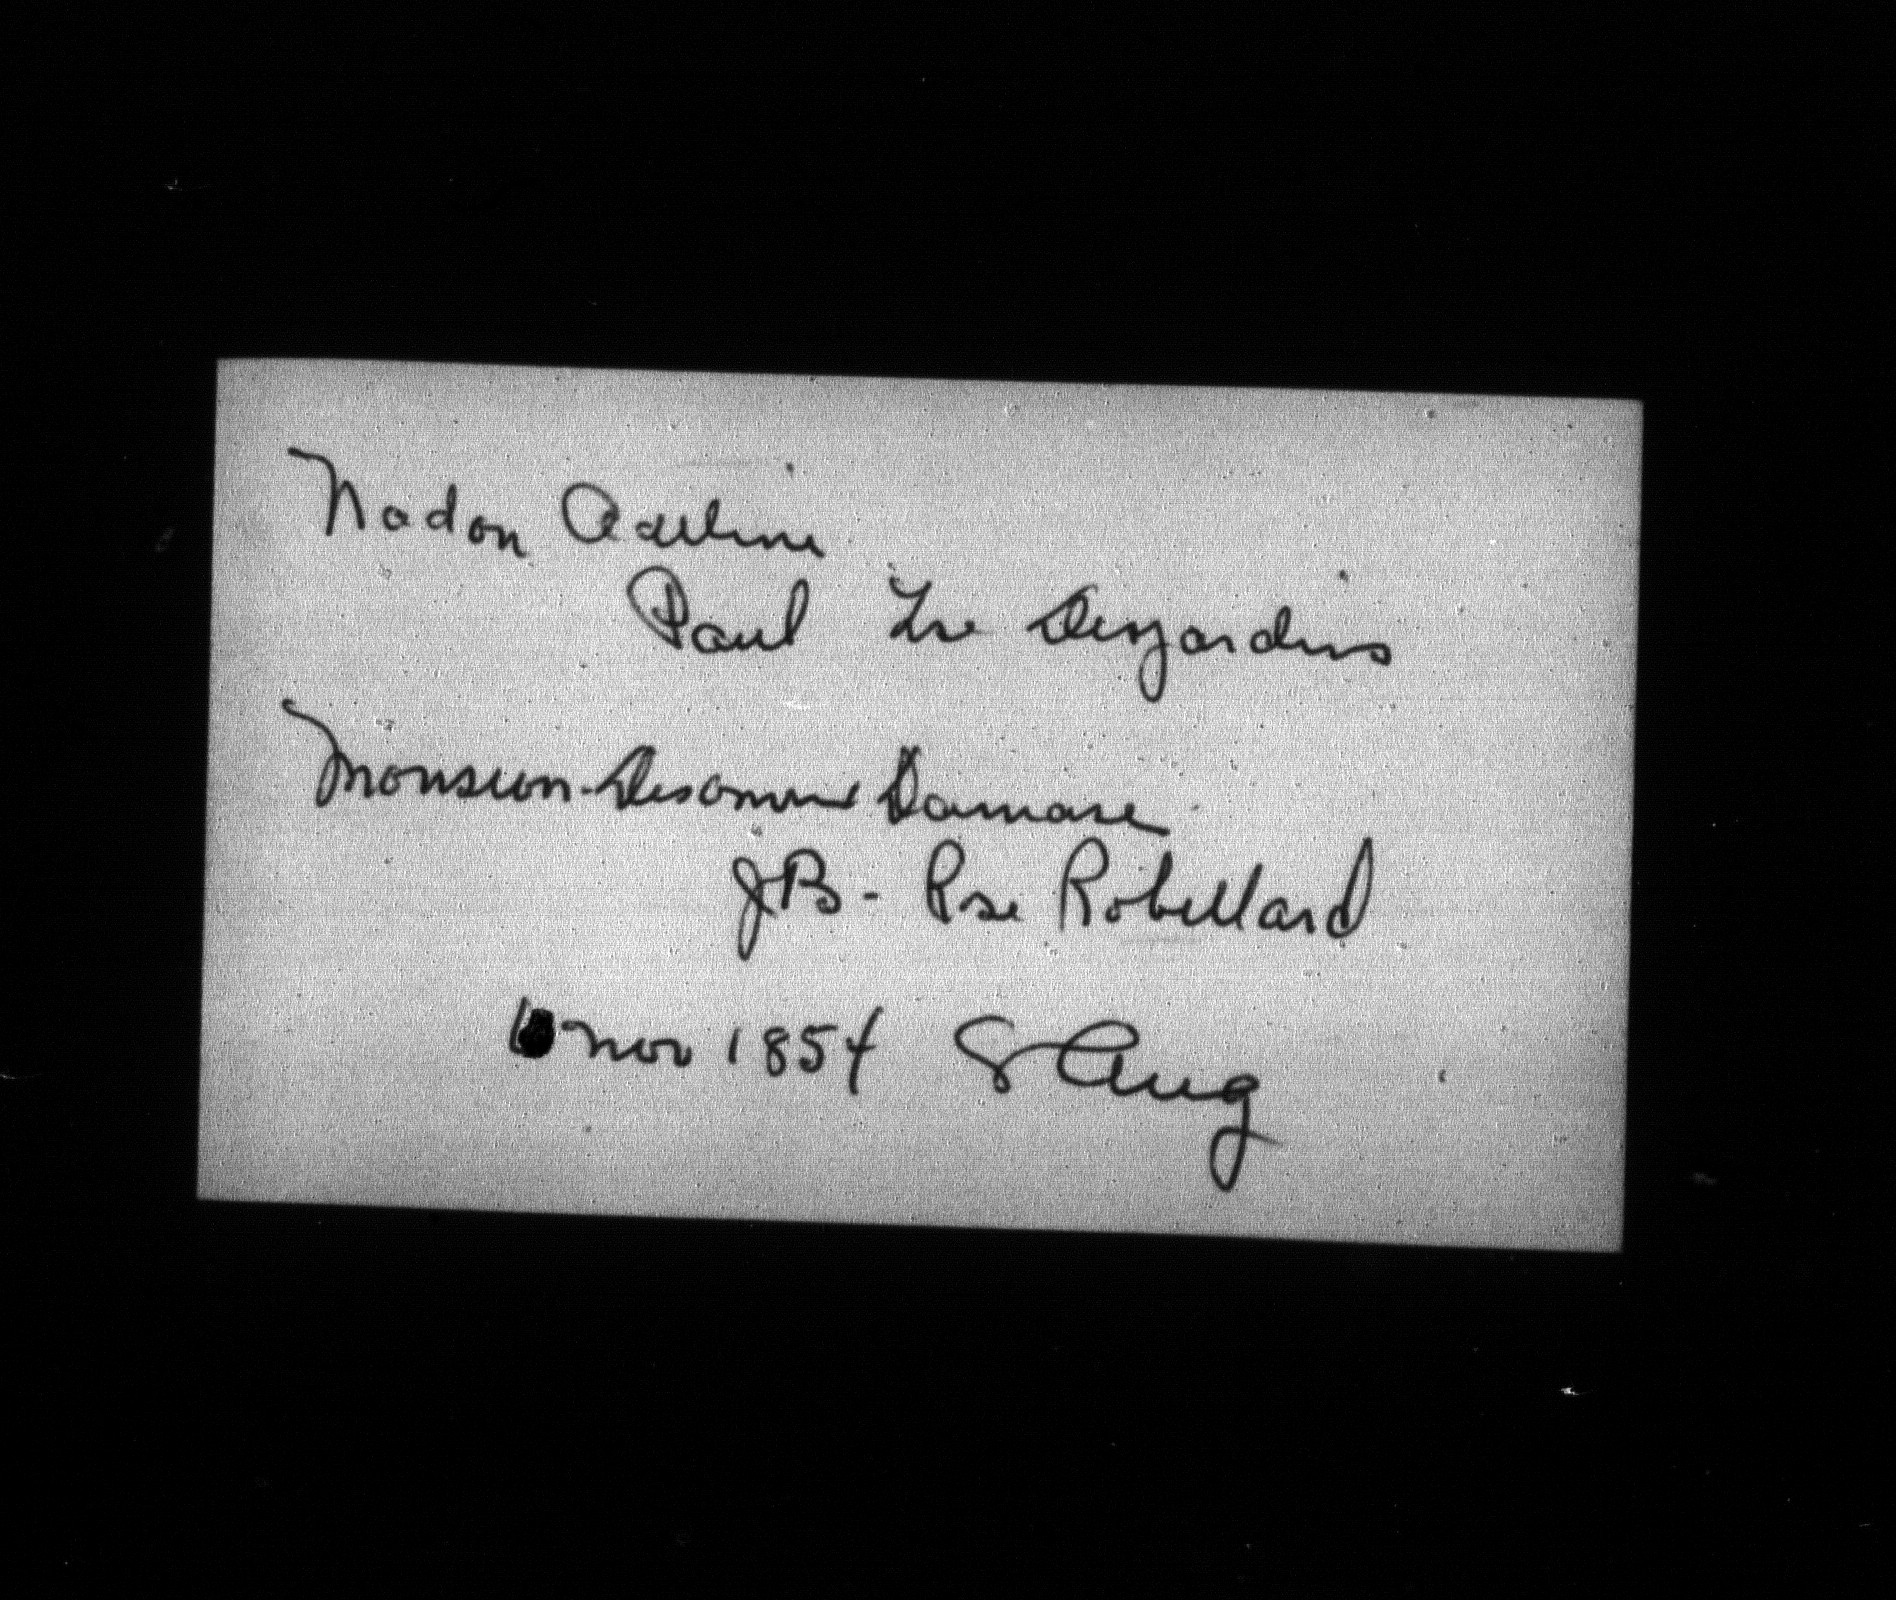 Nadon Adeline
Paul Zoe Desjardins
Monsion-Desormeau Damase
JB - Rose Robillard
nov 1854 S Aug